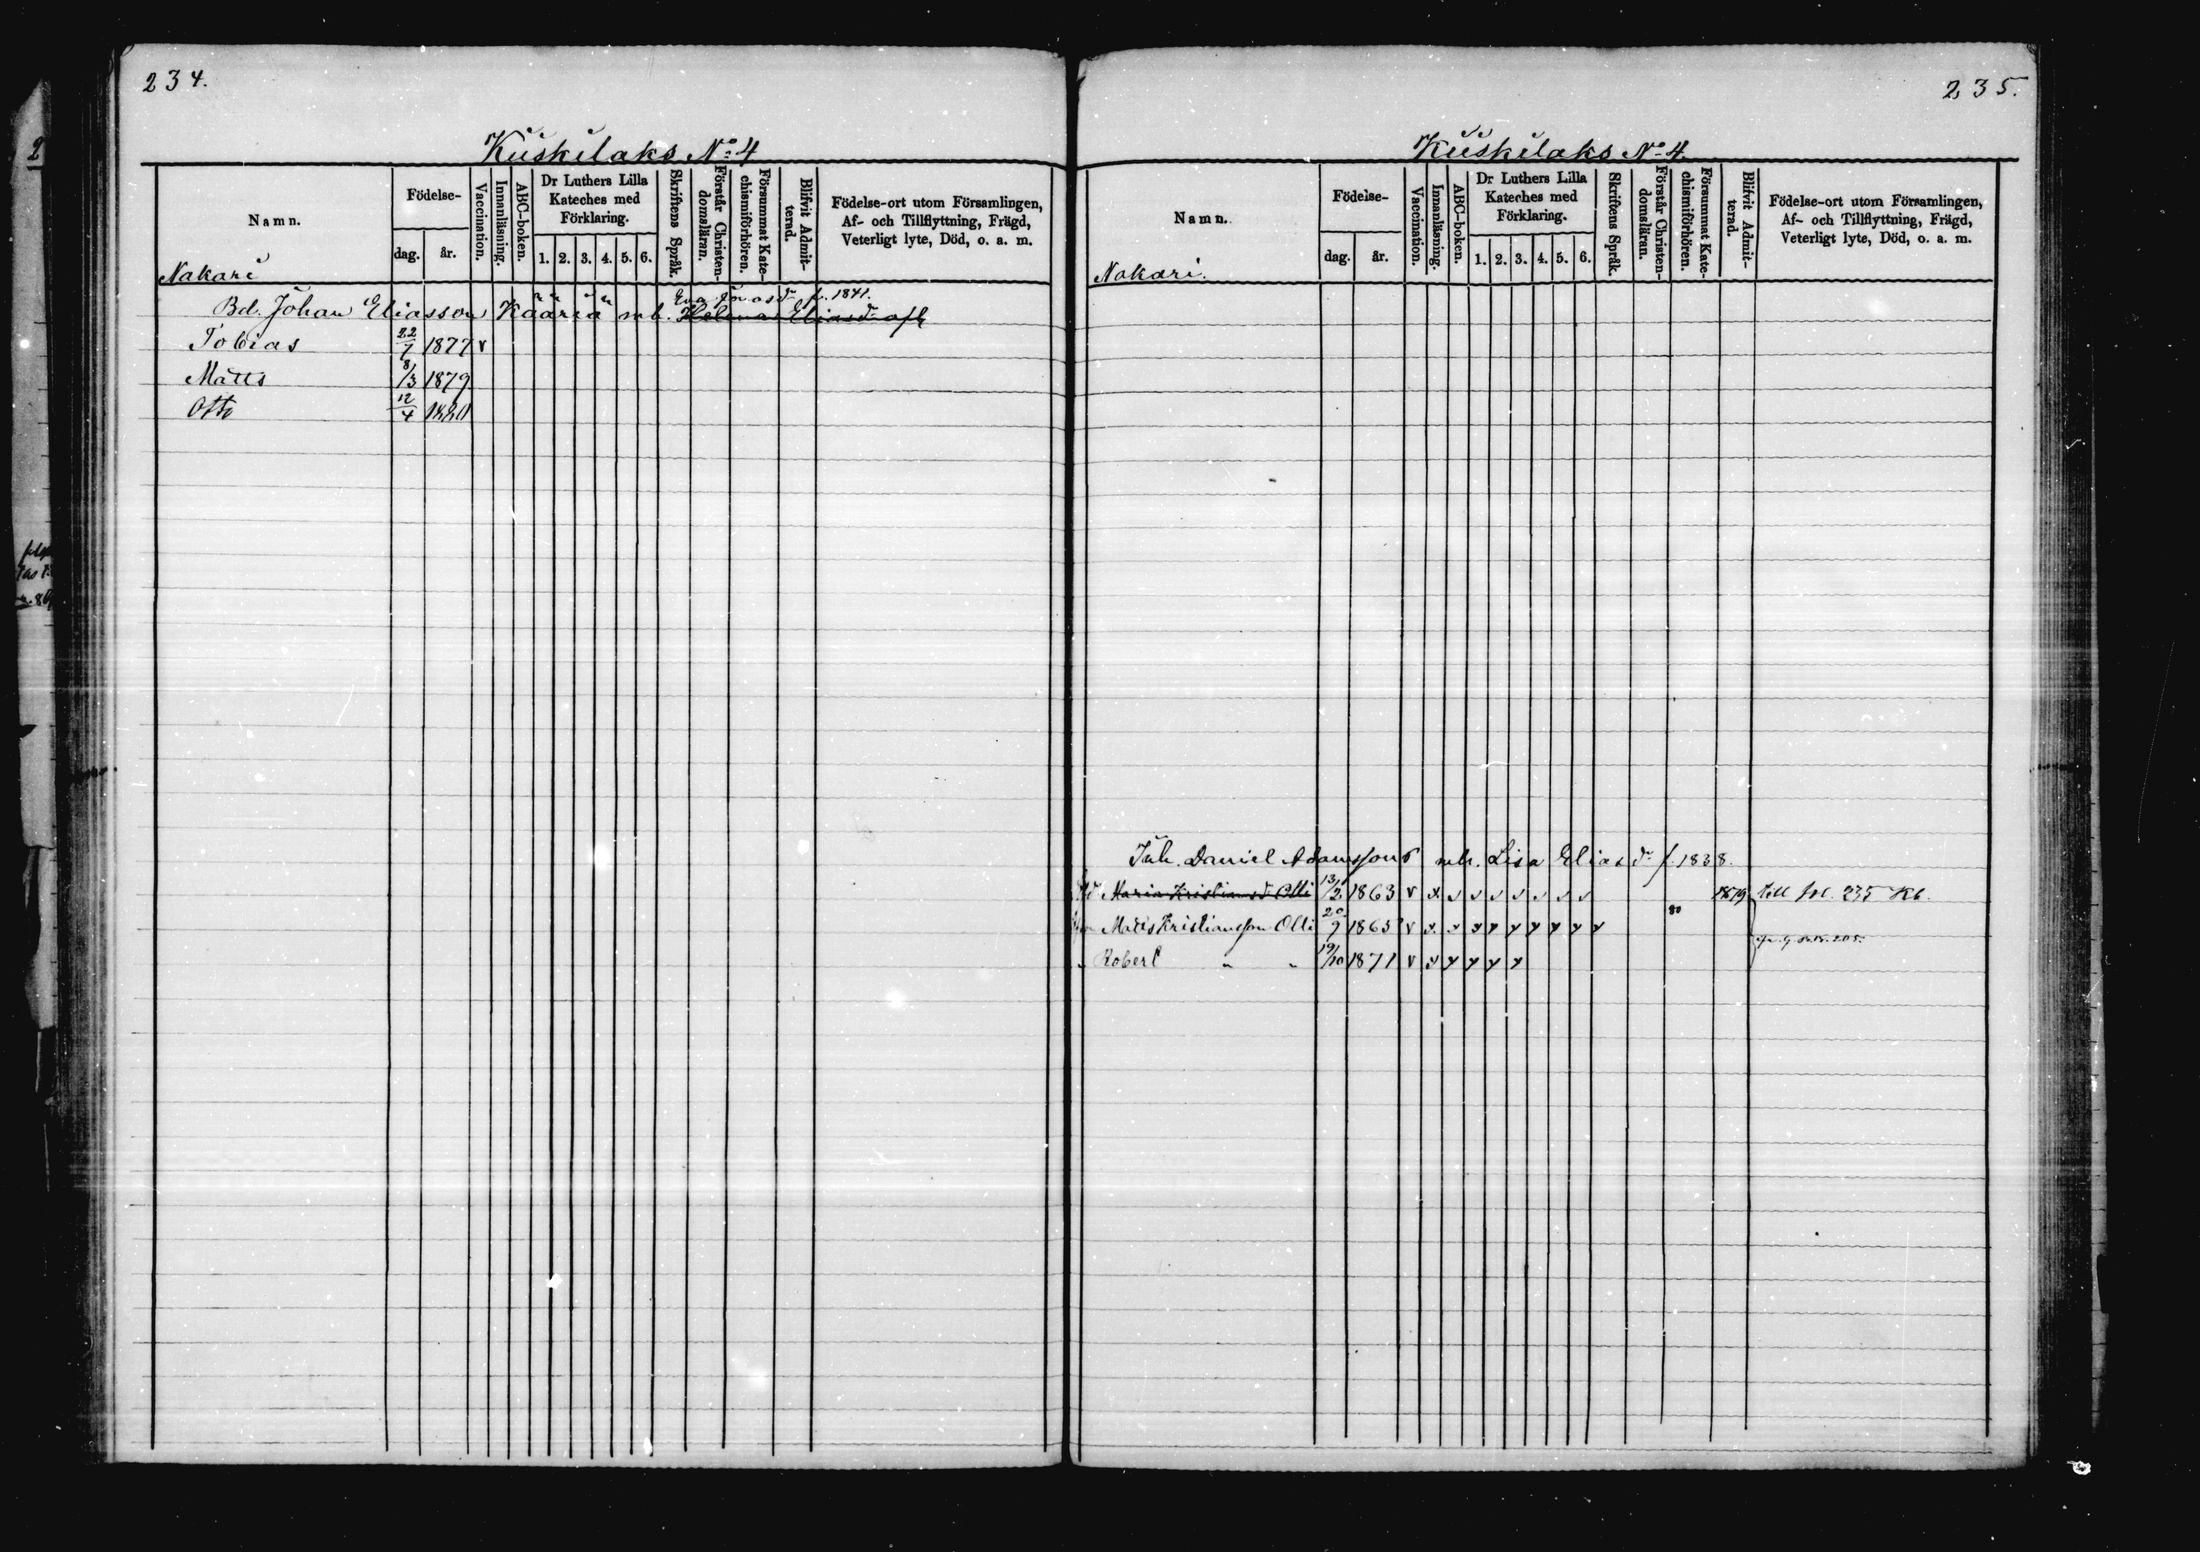 234.
Kuskilaks No 4
Namn.
Födelse-
dag.
år.
Vaccination.
Innanläsning.
ABC-boken.
Dr Luthers Lilla
Kateches med
Förklaring.
1. 2. 3. 4. 5. 6.
Skriftens Språk.
Förstår Christen-
domsläran.
Försummat Kate-
chismiförhören.
Blifvit Admit-
terad.
Födelse-ort utom Församlingen,
Af- och Tillflyttning, Frägd,
Veterligt lyte, Död, o. a. m.
Nakari
Eva Jonasdr f. 1841.
Bd. Johan Eliasson Kääriä mh. Helena Eliasdr
Tobias 22/7 1877 v
Matts 8/3 1879
Otto 12/4 1880
235.
Kuskilaks No 4.
Namn.
Födelse-
dag.
år.
Vaccination.
Innanläsning.
ABC-boken.
Dr Luthers Lilla
Kateches med
Förklaring.
1. 2. 3. 4. 5. 6.
Skriftens Språk.
Förstår Christen-
domsläran.
Försummat Kate-
chismiförhören.
Blifvit Admit-
terad.
Födelse-ort utom Församlingen,
Af- och Tillflyttning, Frägd,
Veterligt lyte, Död, o. a. m.
Nakari.
Inh. Daniel Adamssons mh. Lisa Eliasdr f. 1838.
Maria Kristiansdr Olli 13/2 1863 v x v v v v v v v 1879 till fol. 235 Kb.
Matts Kristiansson Olli 20/9 1865 v x v x v v v v v v 80
Robert " " 19/10 1871 v x v v v v